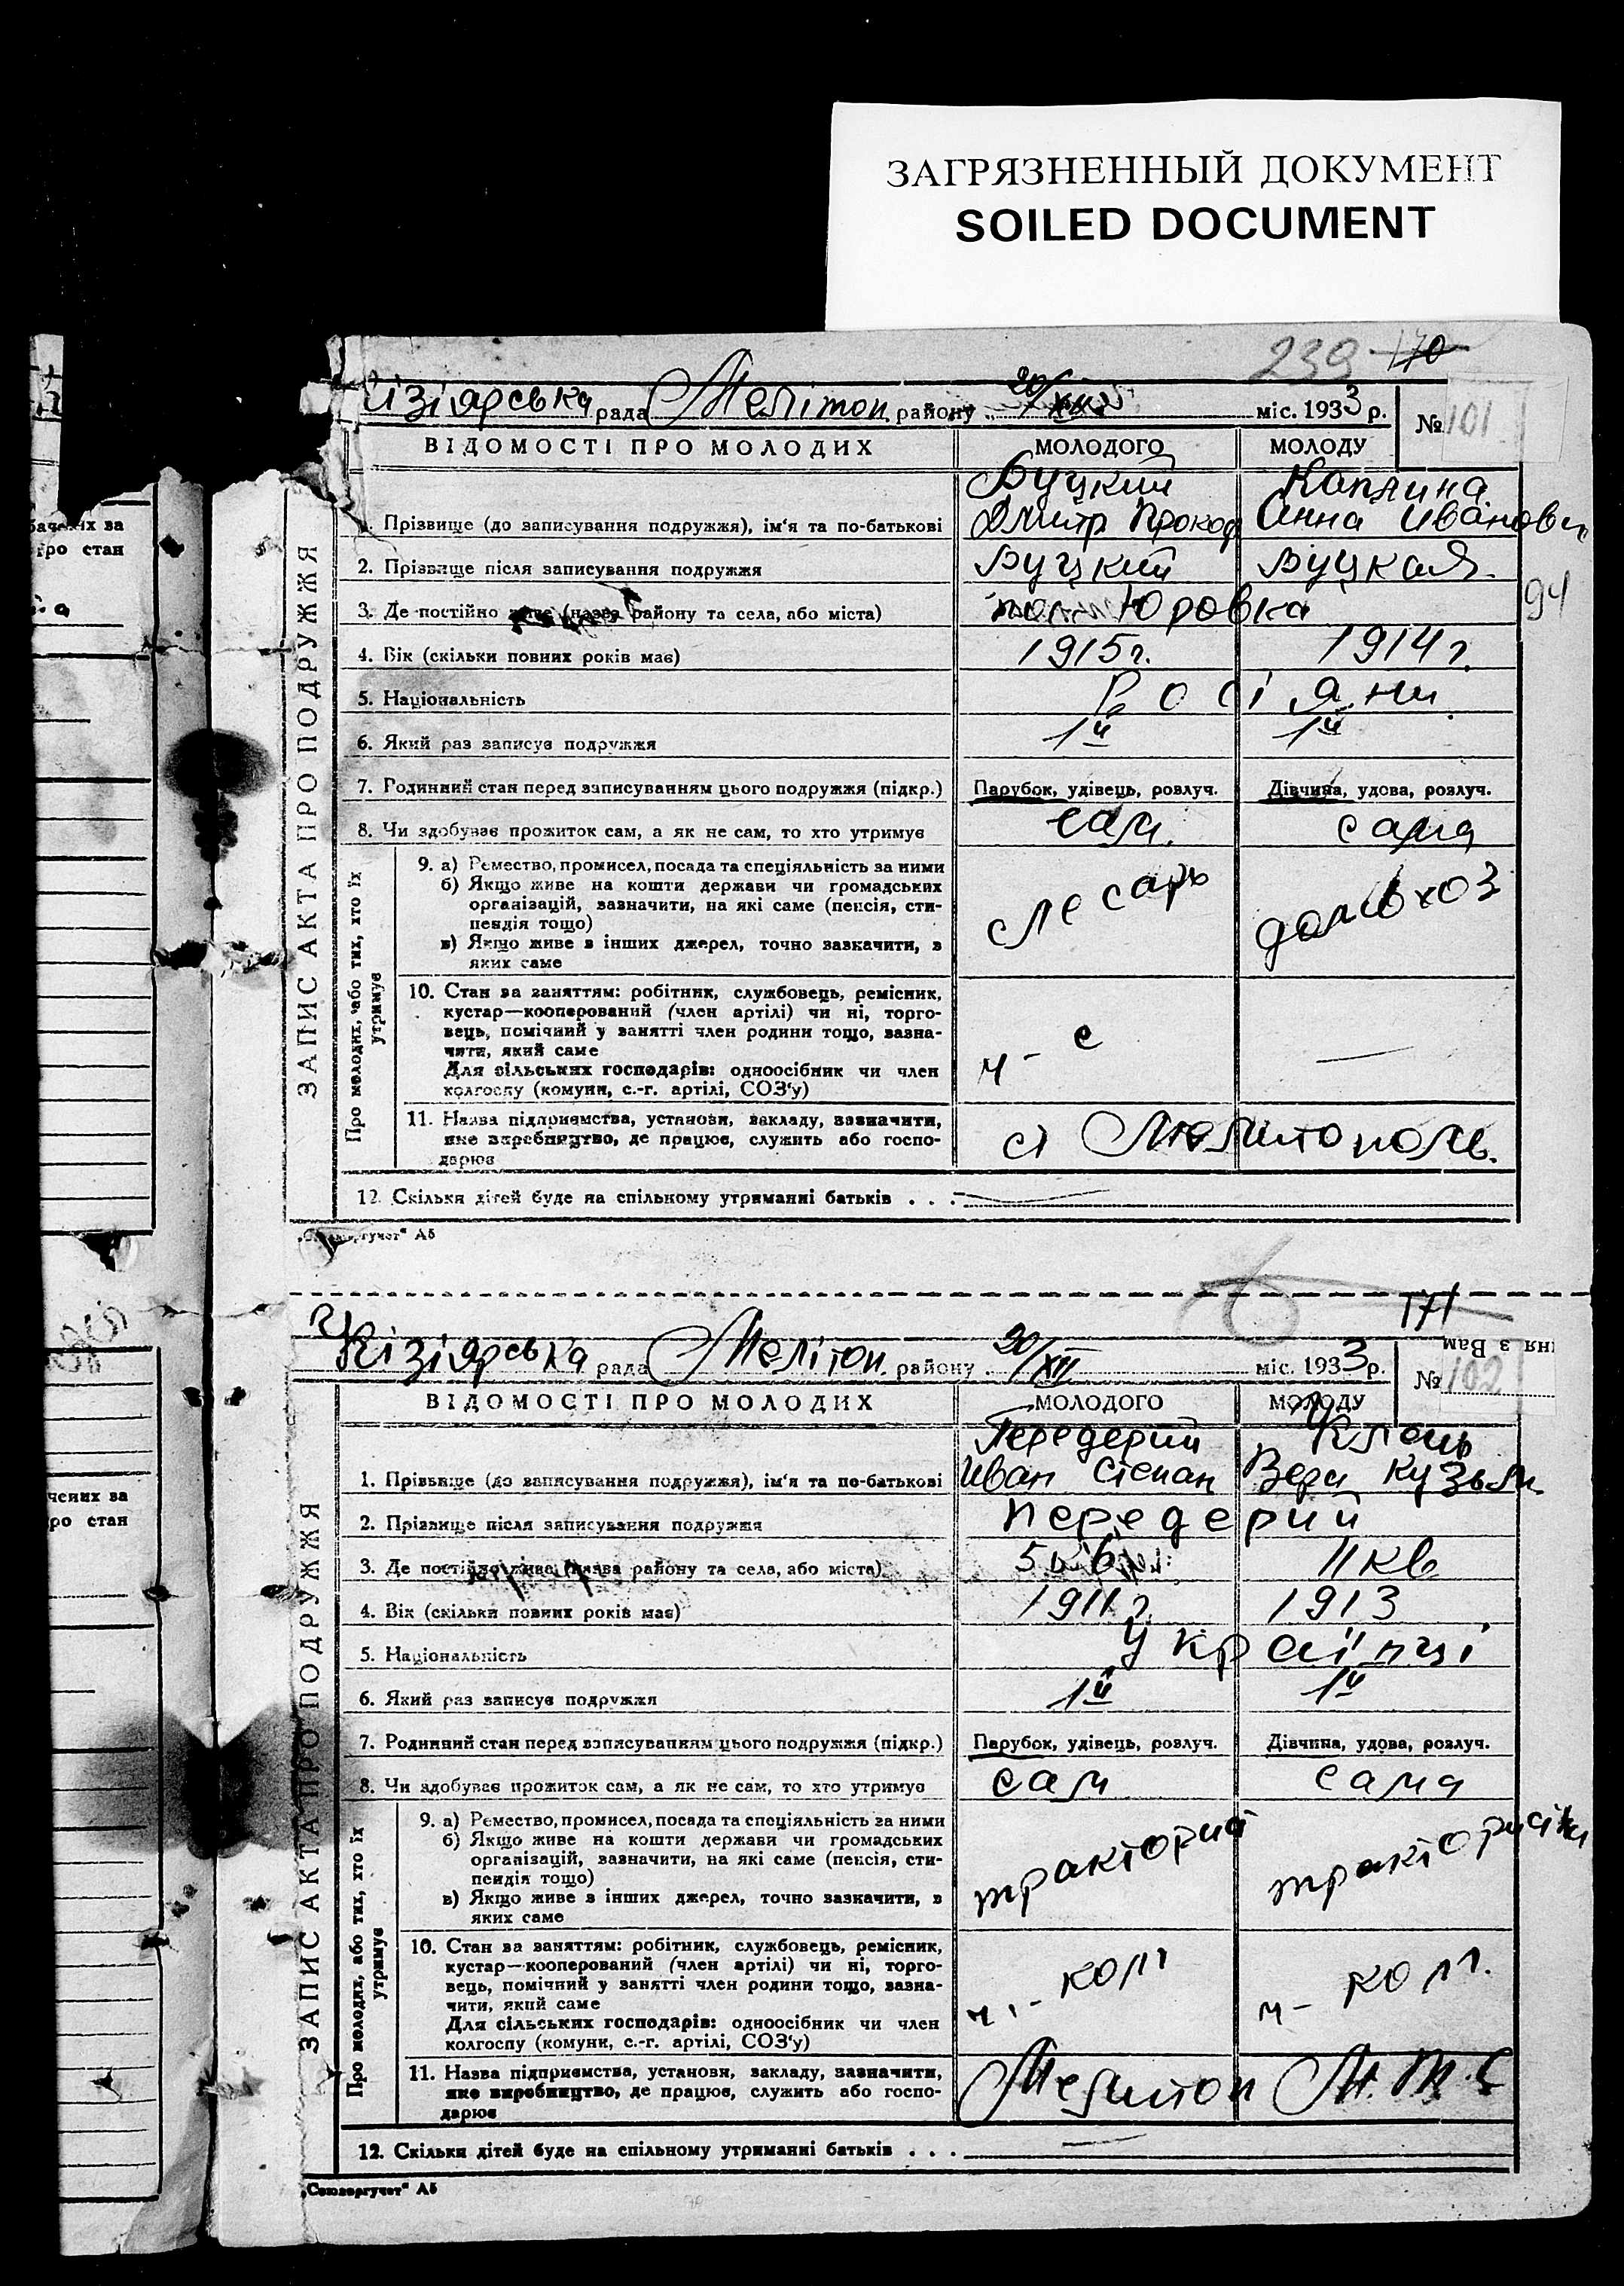 ЗАГРЯЗНЕННЫЙ ДОКУМЕНТ
SOILED DOCUMENT
239 170
ізіярська рада Меліто​п. району 20/XII міс. 1933 р. № 101
ВІДОМОСТІ ПРО МОЛОДИХ МОЛОДОГО МОЛОДУ
Буцкий Каплина
1. Прізвище (до записування подружжя), ім'я та по-батькові Дмитр Прокоф Анна Ивановн
2. Прізвище після записування подружжя Буцкий Буцкая.
3. Де постійно живе (назва району та села, або міста) Юровка
94
4. Вік (скільки повних років має) 1915 г. 1914 г.
5. Національність Росіяни
6. Який раз записує подружжя 1й 1й
7. Родинний стан перед записуванням цього подружжя (підкр.) Парубок, удівець, розлуч. Дівчина, удова, розлуч.
8. Чи здобуває прожиток сам, а як не сам, то хто утримує сам. сама
ЗАПИС АКТА ПРО ПОДРУЖЖЯ
Про молодих, або тих, хто їх утримує
9. а) Ремество, промисел, посада та спеціяльність за ними
б) Якщо живе на кошти держави чи громадських
організацій, зазначити, на які саме (пенсія, сти-
пендія тощо)
в) Якщо живе з інших джерел, точно зазначити, з
яких саме
слесарь домохоз
10. Стан за заняттям: робітник, службовець, ремісник,
кустар—кооперований (член артілі) чи ні, торго-
вець, помічний у занятті член родини тощо, зазна-
чити, який саме
Для сільських господарів: одноосібник чи член
колгоспу (комуни, с.-г. артілі, СОЗ'у)
ч - с —
11. Назва підприємства, установи, закладу, зазначити,
яке виробництво, де працює, служить або госпо-
дарює
ст Мелитополь.
12. Скільки дітей буде на спільному утриманні батьків . . .
гучет" А5
171
ння з Вам
Кізіярська рада Меліто​п. району 20/XII міс. 1933 р. № 102
ВІДОМОСТІ ПРО МОЛОДИХ МОЛОДОГО МОЛОДУ
Передерий Клень
1. Прізвище (до записування подружжя), ім'я та по-батькові Иван Степан Вера Кузьм.
2. Прізвище після записування подружжя Передерий
3. Де постійно живе (назва району та села, або міста) 11 кв
4. Вік (скільки повних років має) 1911 г. 1913
5. Національність Українці
6. Який раз записує подружжя 1й 1й
7. Родинний стан перед записуванням цього подружжя (підкр.) Парубок, удівець, розлуч. Дівчина, удова, розлуч.
8. Чи здобуває прожиток сам, а як не сам, то хто утримує сам сама
ЗАПИС АКТА ПРО ПОДРУЖЖЯ
Про молодих, або тих, хто їх утримує
9. а) Ремество, промисел, посада та спеціяльність за ними
б) Якщо живе на кошти держави чи громадських
організацій, зазначити, на які саме (пенсія, сти-
пендія тощо)
в) Якщо живе з інших джерел, точно зазначити, з
яких саме
10. Стан за заняттям: робітник, службовець, ремісник,
кустар—кооперований (член артілі) чи ні, торго-
вець, помічний у занятті член родини тощо, зазна-
чити, який саме
Для сільських господарів: одноосібник чи член
колгоспу (комуни, с.-г. артілі, СОЗ'у)
ч. - колг ч - колг.
11. Назва підприємства, установи, закладу, зазначити,
яке виробництво, де працює, служить або госпо-
дарює
Мелитоп М.Т.С
12. Скільки дітей буде на спільному утриманні батьків . . . —
„Союзоргучет" А5
бачених за
про стан
чених за
ро стан